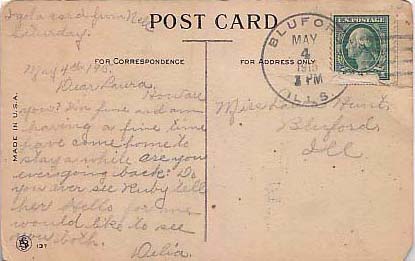 I got a card from Nell
Saturday.
POST CARD
FOR CORRESPONDENCE
FOR ADDRESS ONLY
MADE IN U.S.A.
BLUFORD
MAY
4
1 PM
ILLS.
U.S. POSTAGE
May 4th/15.
Dear Laura.
How are
you? I'm fine and am
having a fine time
have come home to
stay a while are you
ever going back? Do
you ever see Ruby tell
her Hello for me
would like to see
you both.
Delia.
Miss Hunt
Bluford
Ill
137